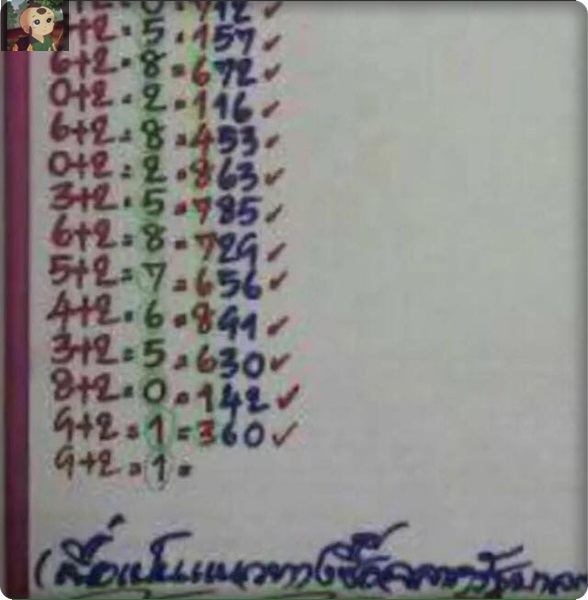 5 = 157 ✓
6+2 = 8 = 672 ✓
0+2 = 2 = 116 ✓
6+2 = 8 = 453 ✓
0+2 = 2 = 863 ✓
3+2 = 5 = 785 ✓
6+2 = 8 = 729 ✓
5+2 = 7 = 656 ✓
4+2 = 6 = 891 ✓
3+2 = 5 = 630 ✓
8+2 = 0 = 142 ✓
9+2 = 1 = 360 ✓
9+2 = 1 =
(เพื่อเป็นแนวทางซื้อสลากรัฐบาล